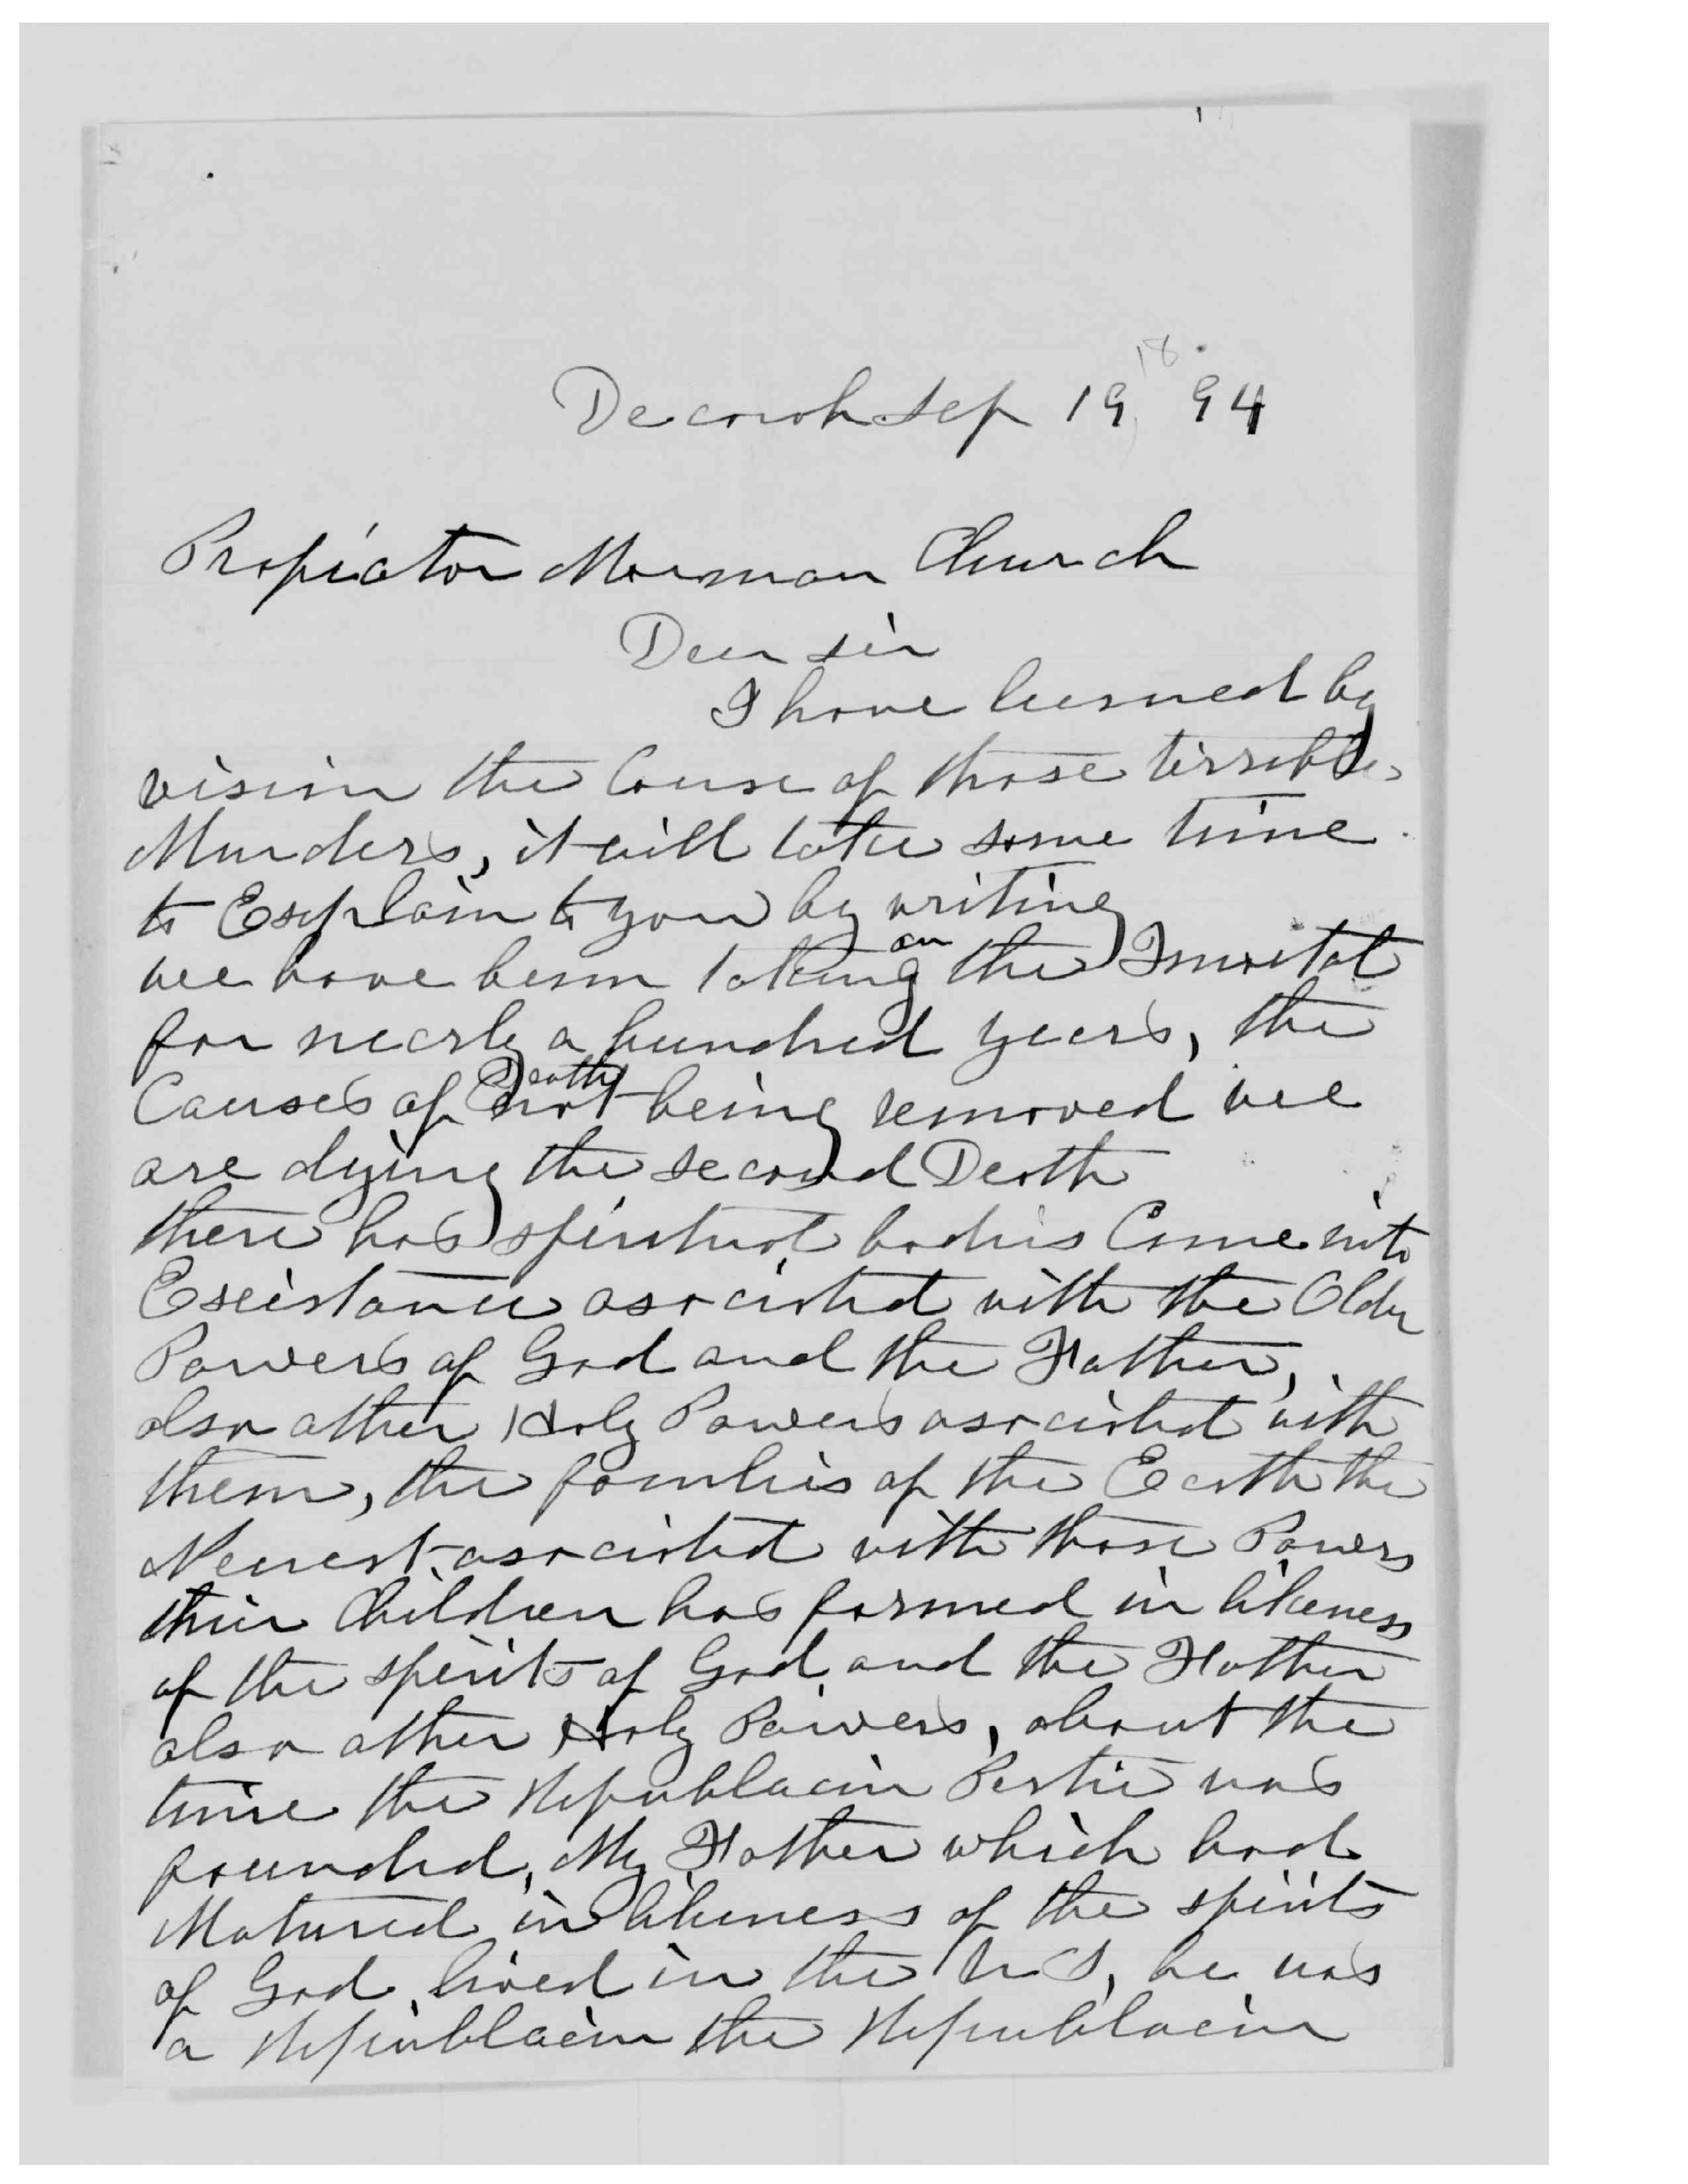 18
Decorah Sep 19, 94
Propiator Morman Church
Dear sir
I have learned by
vision the Cause of those terrible
Murders, it will take some time
to Explain to you by writing
wee have been taking on the Imortal
for nearly a hundred years, the
Causes of Death not being removed wee
are dying the second Death
there has spiritual bodies Come into
Exeistance asociated with the Older
Powers of God and the Father,
also other Holy Powers asociated with
them, the families of the Earth the
Nearest asociated with those Powers
their Children has formed in likeness
of the spirits of God and the Father
also other Holy Powers, about the
time the Republacin Partie was
founded, My Father which had
Matured in likeness of the spirits
of God lived in the U S, he was
a Republacin the Republacin